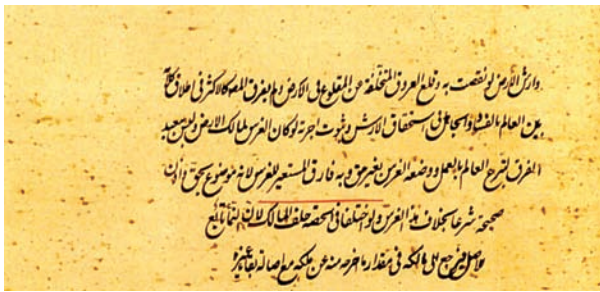 وارش الأرض لو نقصت به وقلع العروق المتخلفة عن المقلوع في الأرض ولم يفرق المص كالأكثر في إطلاق كلامه
بين العالم بالفساد والجاهل في استحقاق الأرش وثبوت أجرته لو كان الغرس لمالك الأرض وليس ببعيد
الفرق لتبرع العالم بالعمل ووضعه الغرس بغير حق وبه فارق المستعير للغرس لأنه موضوع بحق وإذن
صحيحة شرعا بخلاف هذا الغرس ولو اختلفا في الحصة حلف المالك لأن النماء تابع
للأصل فيرجع إلى مالكه في مقدار ما أخرجه منه عن ملكه مع أصالة بقاء غيره